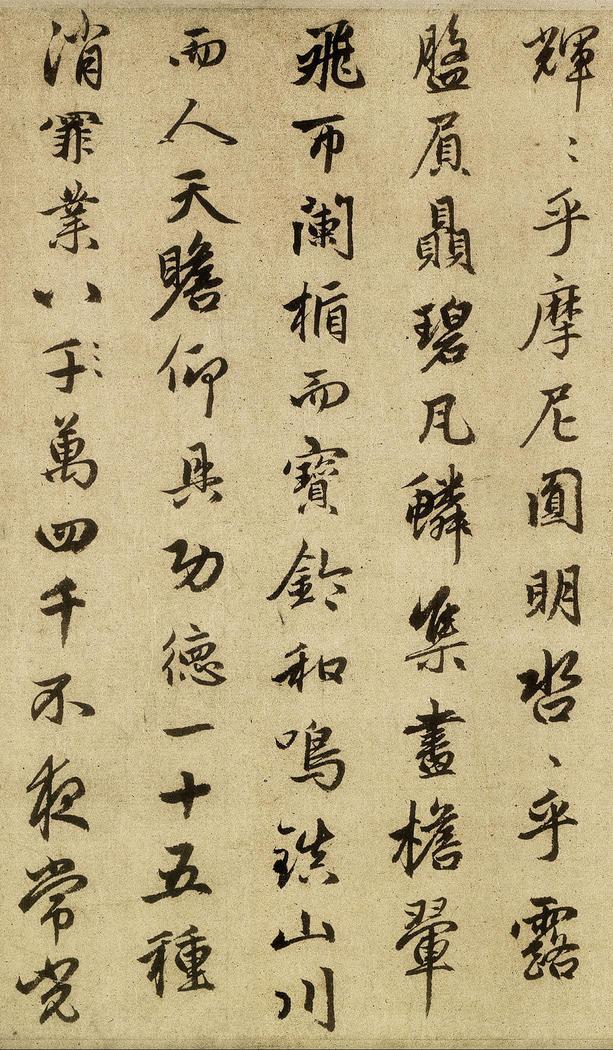 輝〻乎摩尼圓明沓〻乎露
盤屓贔碧瓦鱗集畫檐翬
飛布闌楯而寶鈴和鳴鎮山川
而人天瞻仰具功德一十五種
消罪業八千萬四千不夜常光